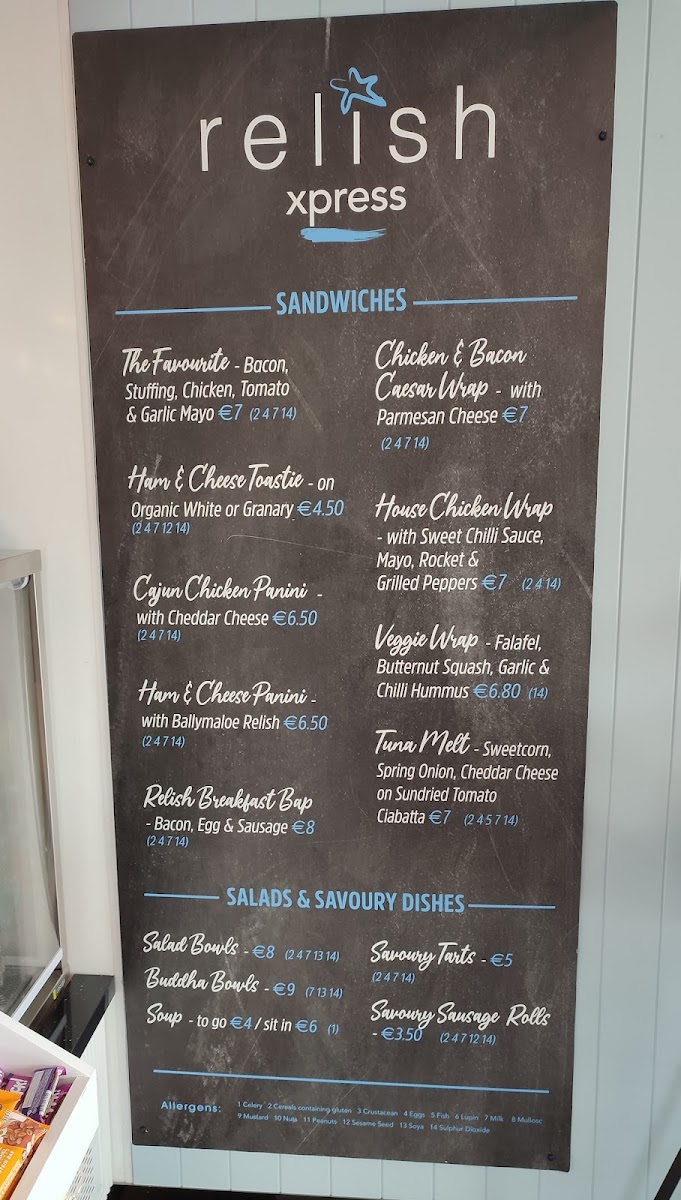 relish
xpress
SANDWICHES
The Favourite - Bacon,
Stuffing, Chicken, Tomato
& Garlic Mayo €7 (2 4 7 14)
Ham & Cheese Toastie - on
Organic White or Granary €4.50
(2 4 7 12 14)
Cajun Chicken Panini -
with Cheddar Cheese €6.50
(2 4 7 14)
Ham & Cheese Panini -
with Ballymaloe Relish €6.50
(2 4 7 14)
Relish Breakfast Bap
- Bacon, Egg & Sausage €8
(2 4 7 14)
Chicken & Bacon
Caesar Wrap - with
Parmesan Cheese €7
(2 4 7 14)
House Chicken Wrap
- with Sweet Chilli Sauce,
Mayo, Rocket &
Grilled Peppers €7 (2 4 14)
Veggie Wrap - Falafel,
Butternut Squash, Garlic &
Chilli Hummus €6.80 (14)
Tuna Melt - Sweetcorn,
Spring Onion, Cheddar Cheese
on Sundried Tomato
Ciabatta €7 (2 4 5 7 14)
SALADS & SAVOURY DISHES
Salad Bowls - €8 (2 4 7 13 14)
Buddha Bowls - €9 (7 13 14)
Soup - to go €4 / sit in €6 (1)
Savoury Tarts - €5
(2 4 7 14)
Savoury Sausage Rolls
- €3.50 (2 4 7 12 14)
Allergens: 1 Celery 2 Cereals containing gluten 3 Crustacean 4 Eggs 5 Fish 6 Lupin 7 Milk 8 Mollosc
9 Mustard 10 Nuts 11 Peanuts 12 Sesame Seed 13 Soya 14 Sulphur Dioxide